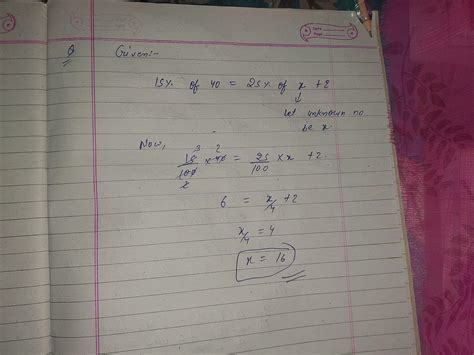 Q Given:-
15% of 40 = 25% of x + 2
↓
let unknown no
be x.
Now,
15/100 × 40 = 25/100 × x + 2
6 = x/4 + 2
x/4 = 4
x = 16